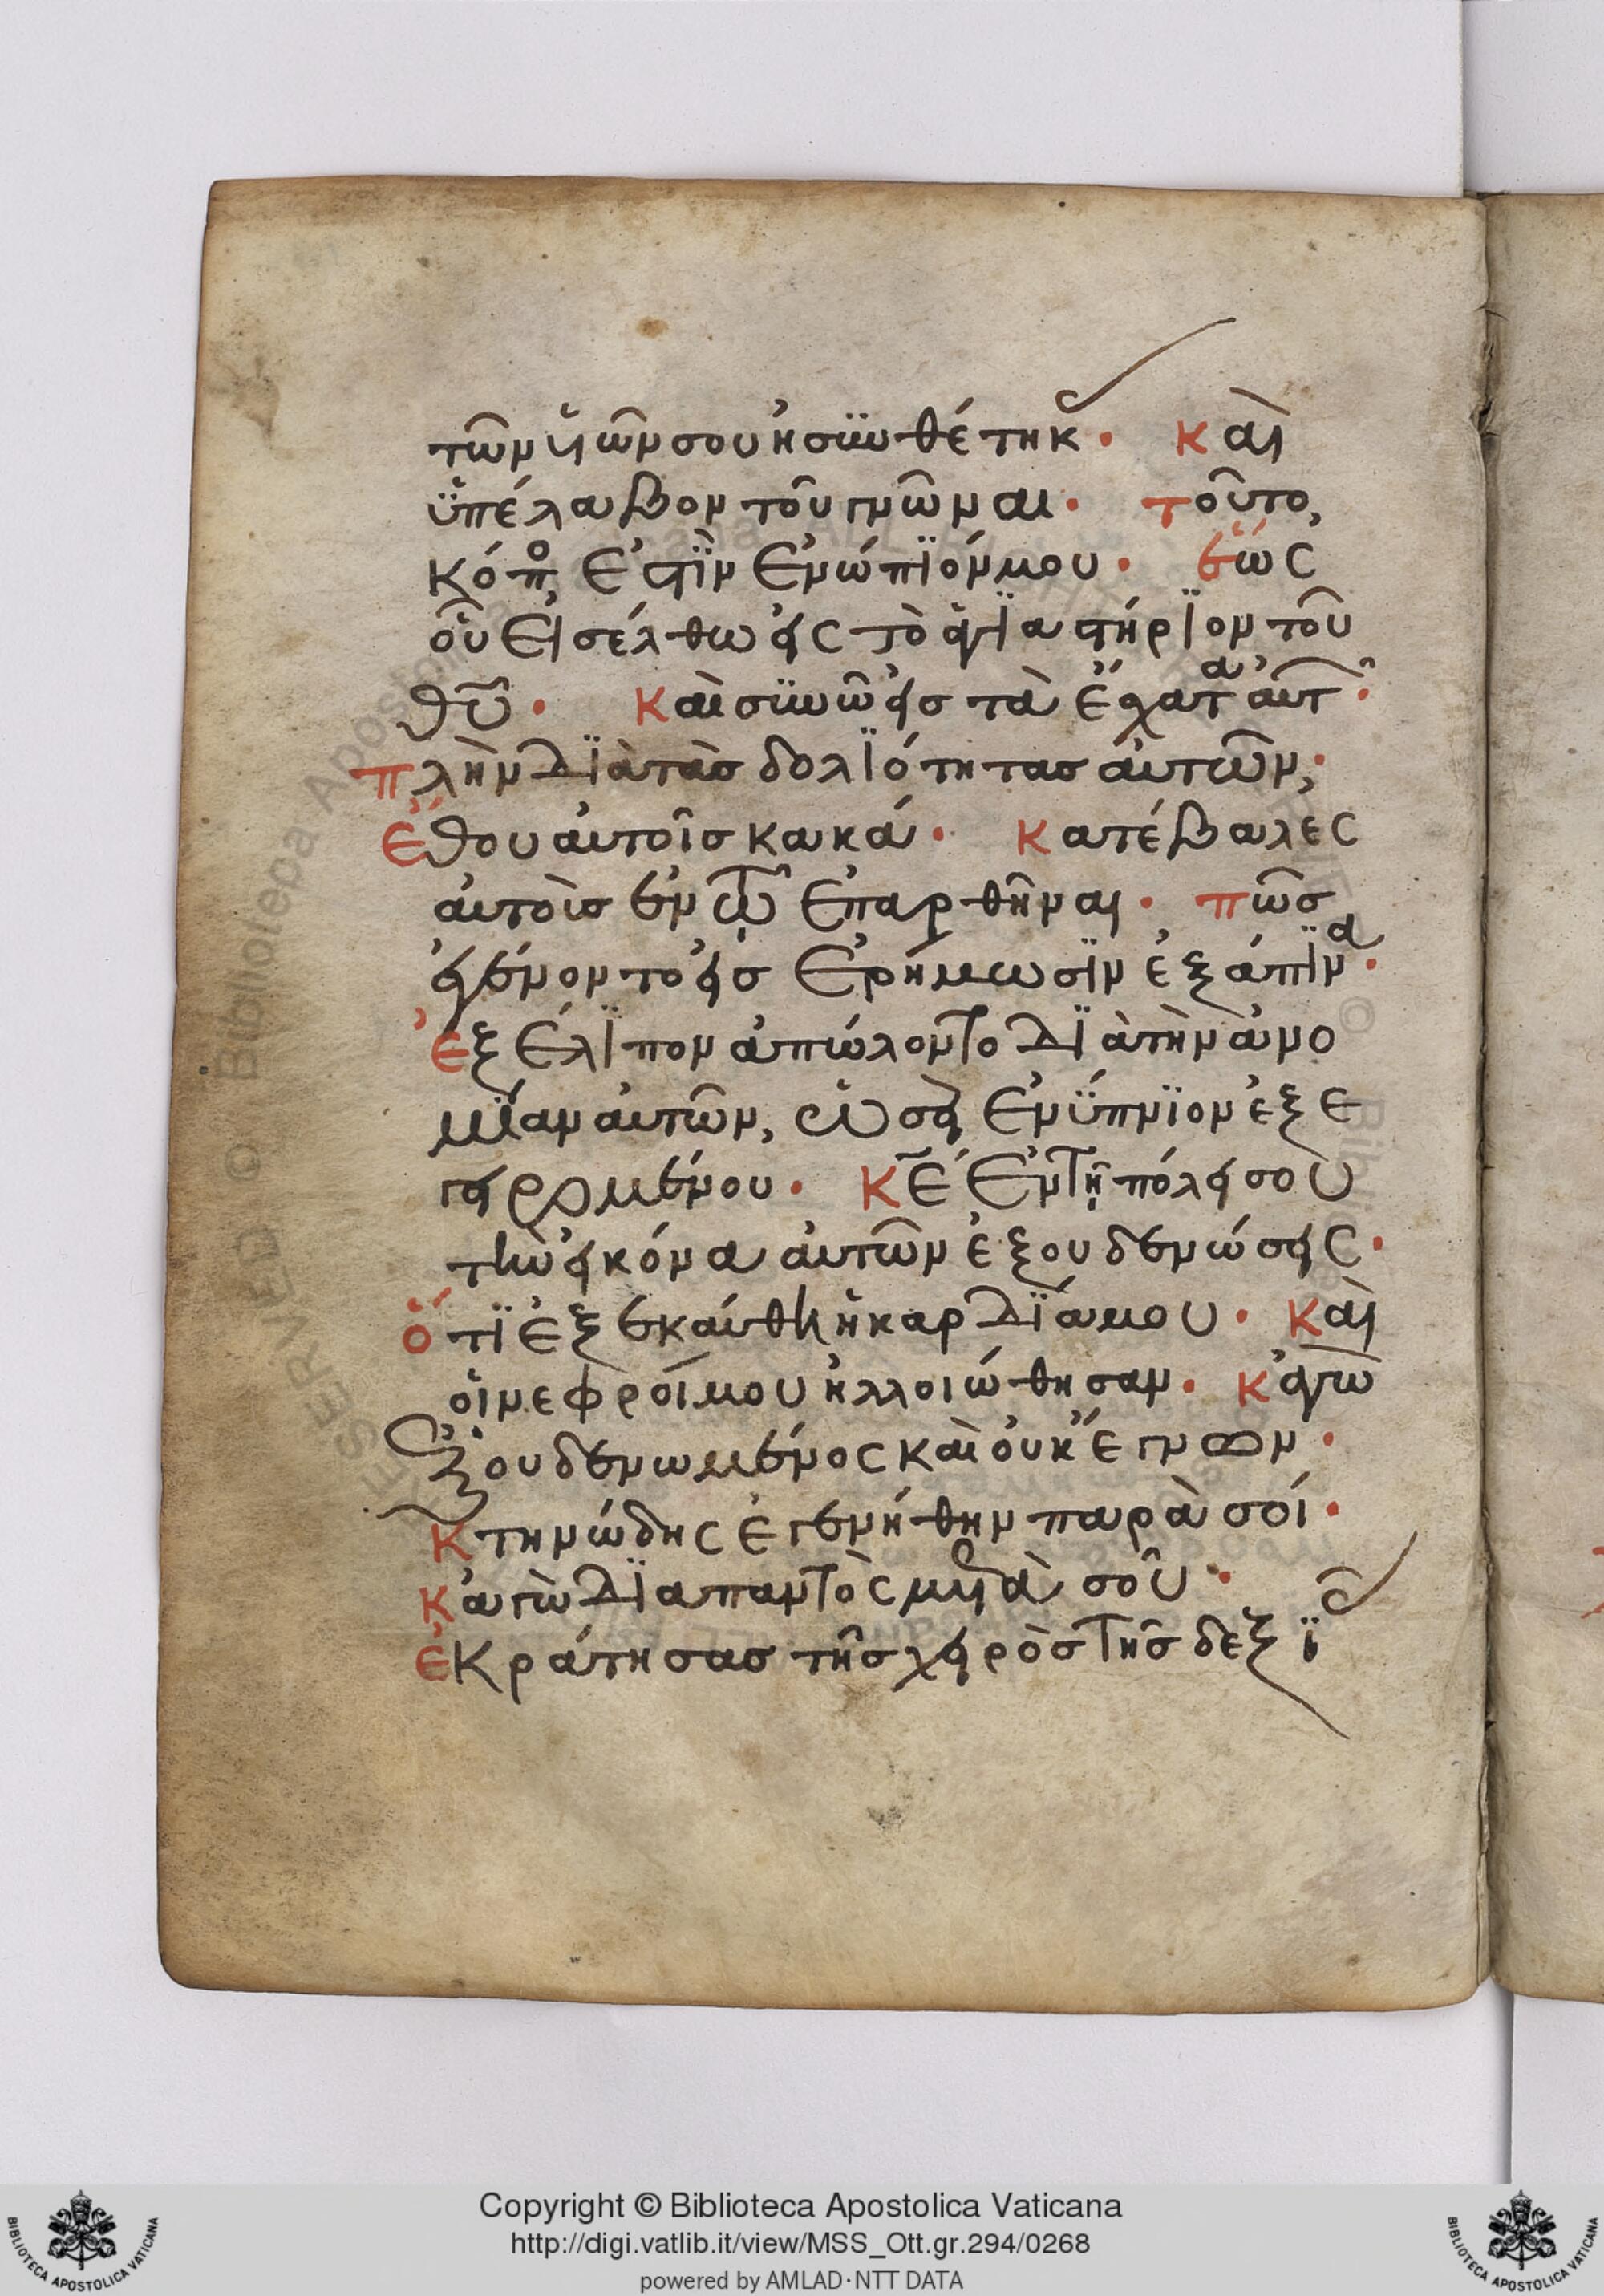 τῶν ὑιῶν σου ἠσυνθέτηκ· Καὶ
ὑπέλαβον τοῦ γνῶναι· τοῦτο,
κόπο ἐστὶν ἐνώπϊόν μου· ἕως
οὗ εἰσέλθω εἰς τὸ ἁγϊαστήρϊον τοῦ
θυ· Καὶ συνῶ εἰσ τὰ ἔσχατα αὐτ·
πλὴν διὰ τὰσ δολϊότητασ αὐτῶν,·
ἔθου αὐτοῖσ κακά· Κατέβαλες
αὐτοὺσ ἐν τῷ ἐπαρθῆναι· πῶσ
ἐγένοντο εἰσ ἐρήμωσϊν ἐξάπϊνα·
ἐξέλϊπον ἀπώλοντο δϊὰ τὴν ἀνο
μΐαν αὐτῶν, ὡσεὶ ἐνύπνϊον ἐξε
γειρομένου· Κε ἐν τῇ πόλει σου
τὴν εἰκόνα αὐτῶν ἐξουδενώσεις·
ὅτϊ ἐξεκαύθη ἡ καρδΐα μου· Καὶ
οἱ νεφροί μου ἠλλοιώθησαν· Κἀγὼ
ἐξουδενωμένος καὶ οὐκ ἔγνων·
Κτηνώδης ἐγενήθην παρὰ σοί·
Κἀγὼ δϊαπαντὸς μετὰ σοῦ·
ἐκράτησασ τῆσ χειρὸσ τῆσ δεξϊ
Copyright © Biblioteca Apostolica Vaticana
http://digi.vatlib.it/view/MSS_Ott.gr.294/0268
powered by AMLAD·NTT DATA
BIBLIOTECA APOSTOLICA VATICANA
BIBLIOTECA APOSTOLICA VATICANA